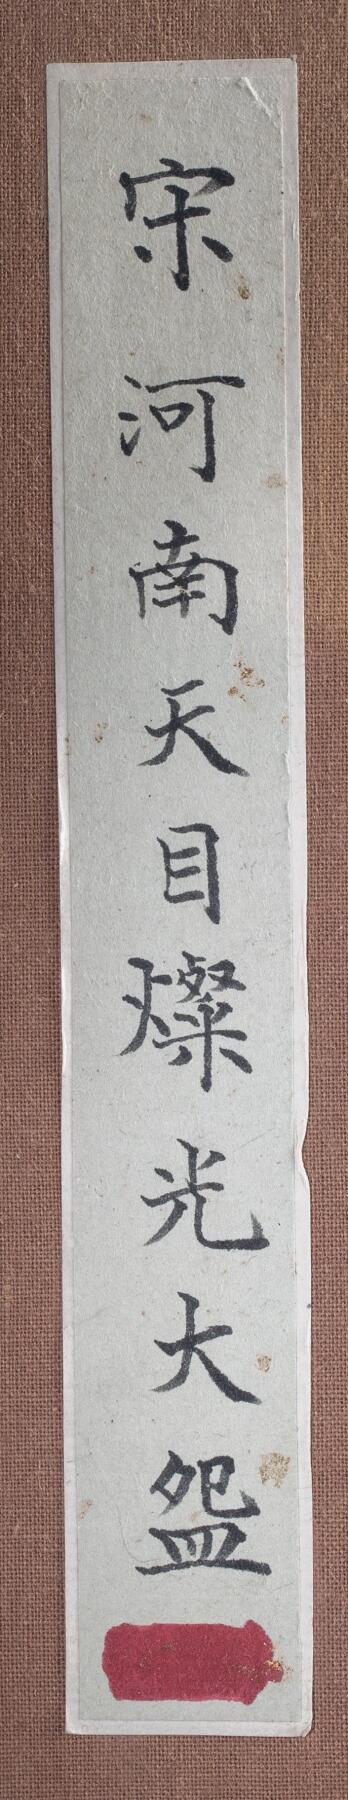 宋河南天目燦光大盌